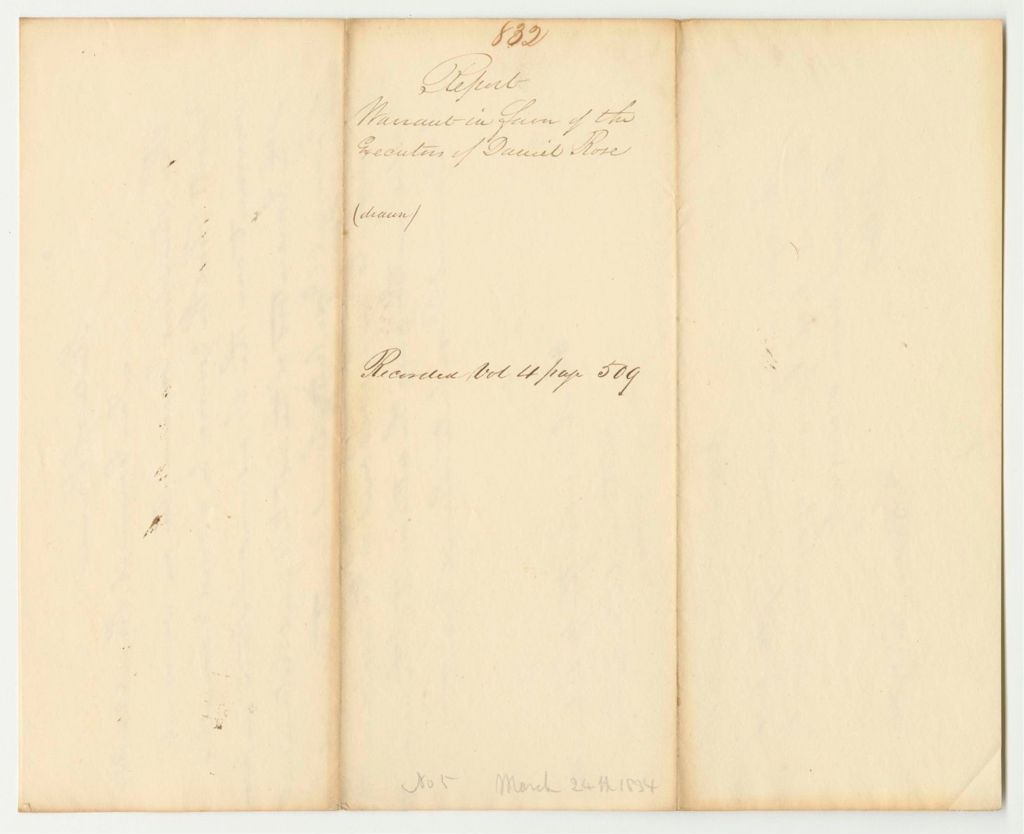 832
Report
Warrant in favor of the
Executors of Daniel Rose
(drawn)
Recorded Vol 4 page 509
No 5 March 24th 1834